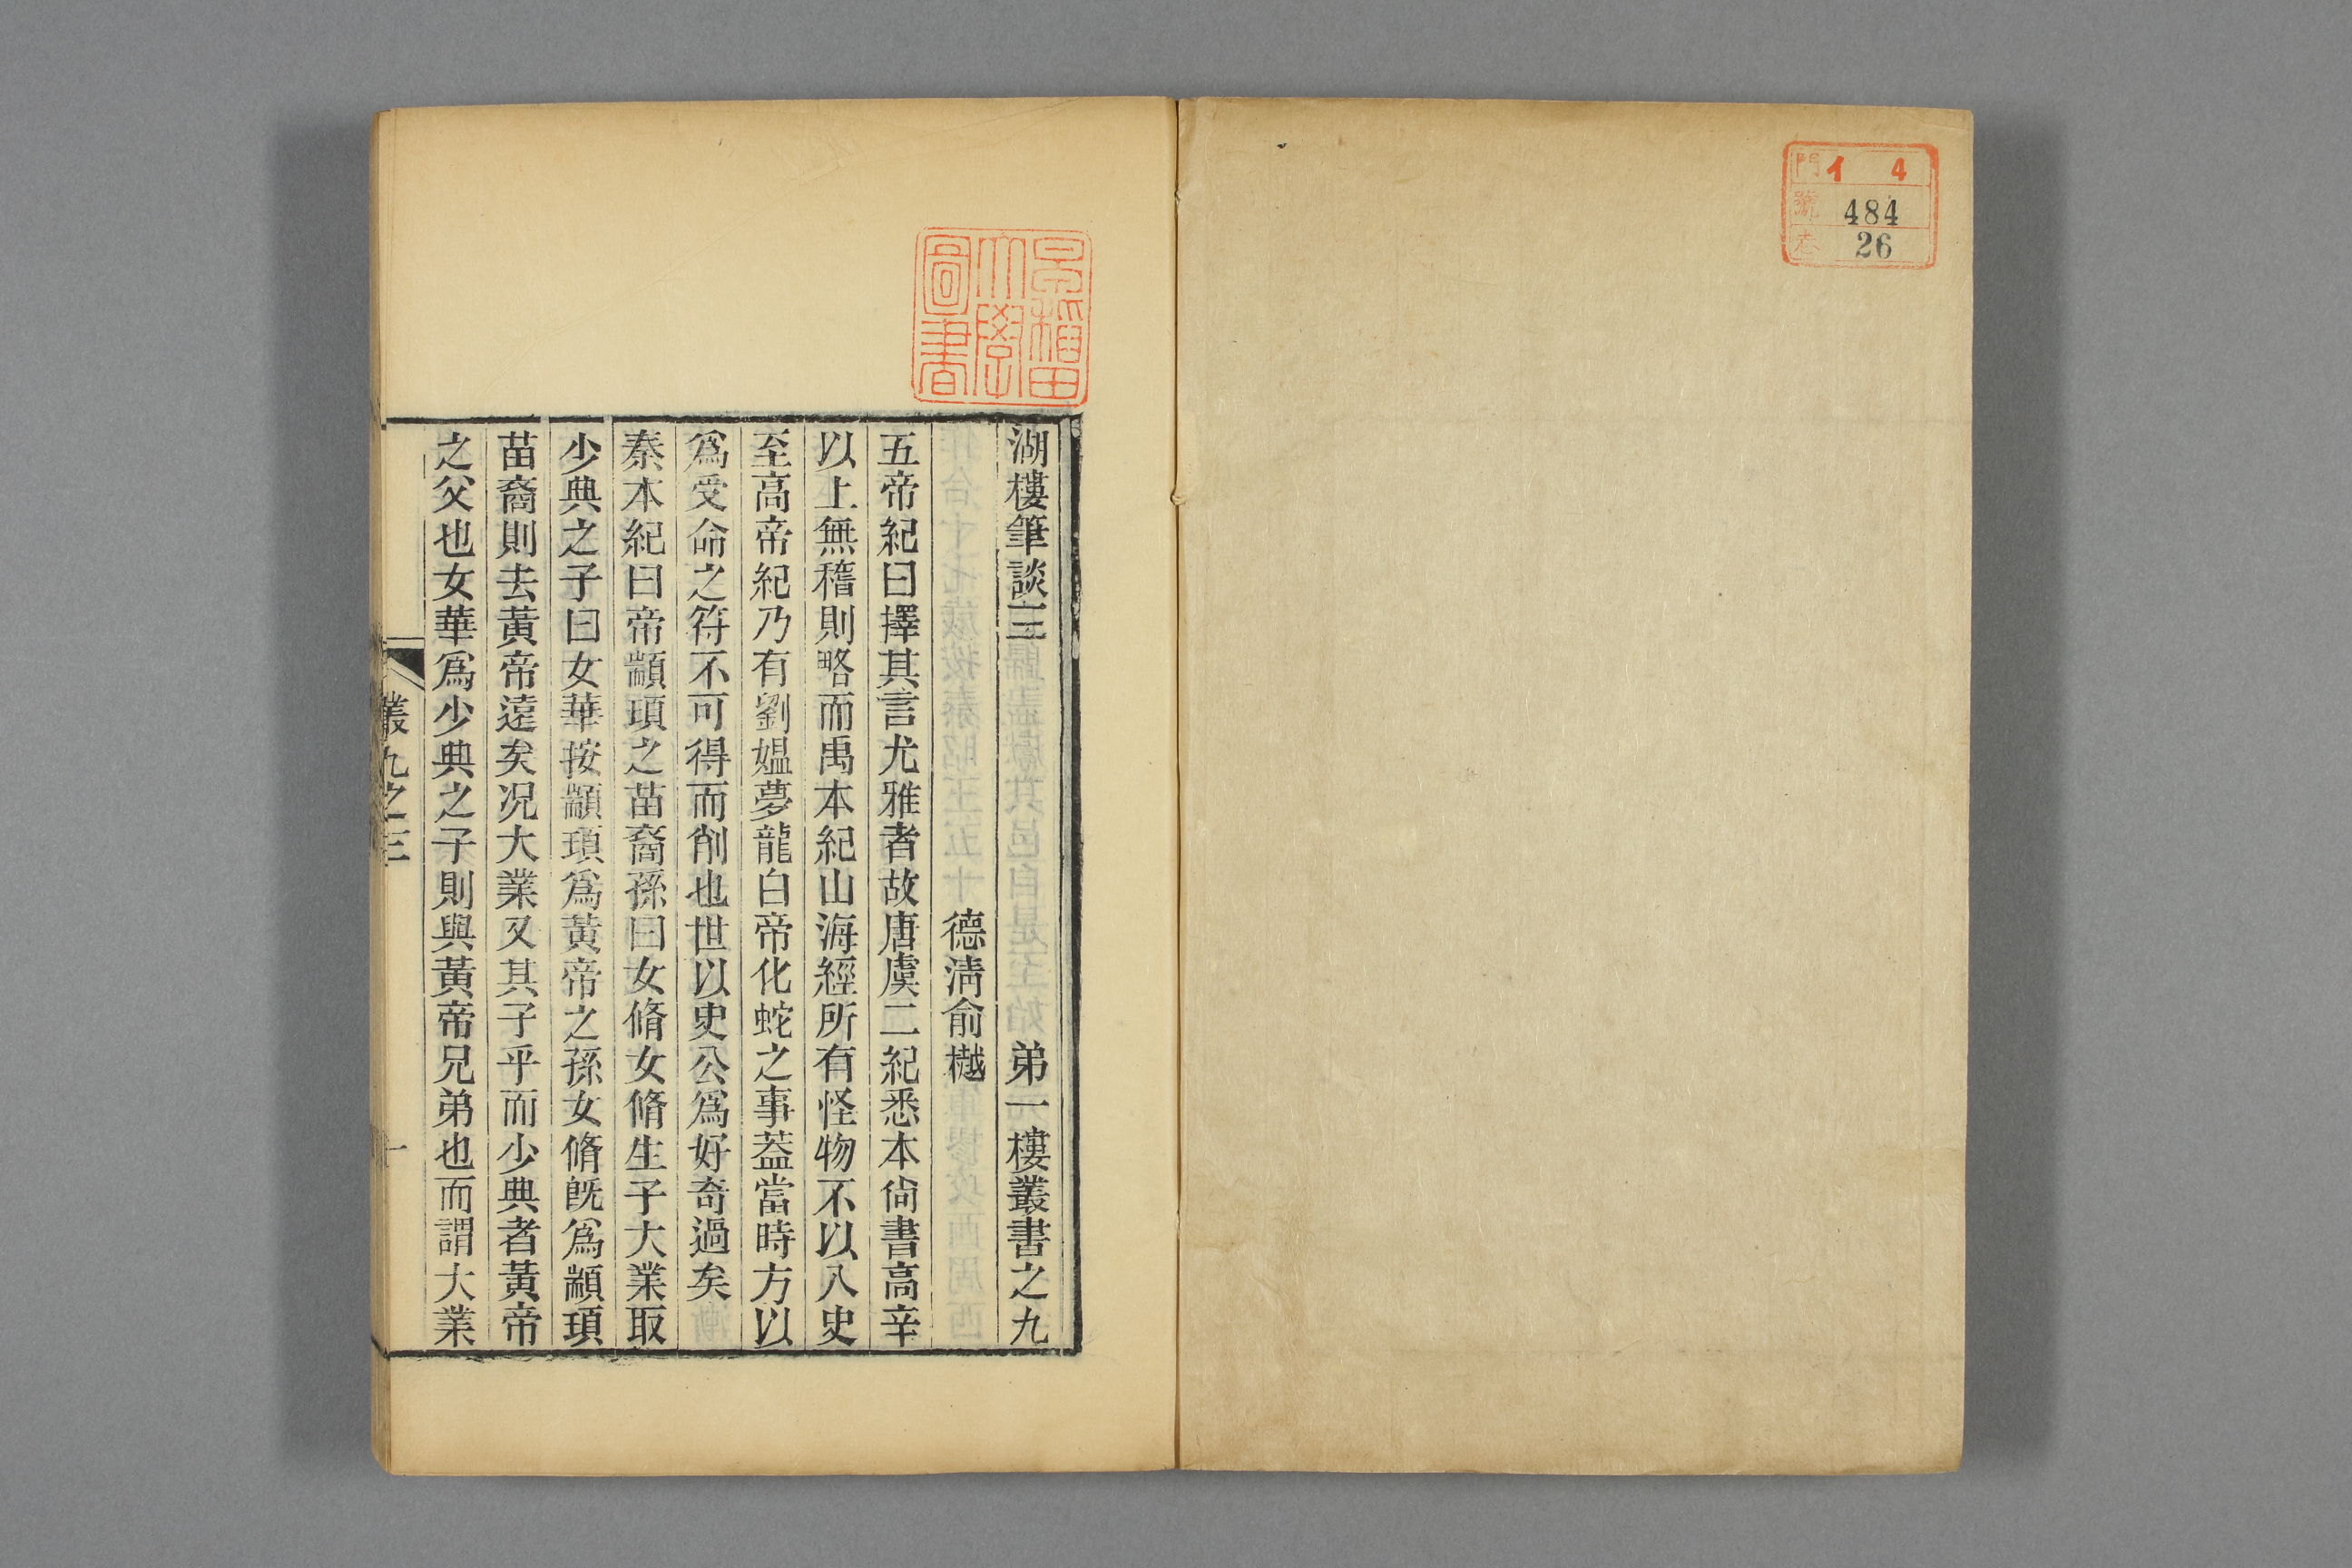 門 イ 4
號 484
卷 26
早稲田大學圖書
湖樓筆談三 弟一樓叢書之九
德清俞樾
五帝紀曰擇其言尤雅者故唐虞二紀悉本尙書高辛
以上無稽則略而禹本紀山海經所有怪物不以入史
至高帝紀乃有劉媼夢龍白帝化蛇之事葢當時方以
爲受命之符不可得而削也世以史公爲好奇過矣
秦本紀曰帝顓頊之苗裔孫曰女脩女脩生子大業取
少典之子曰女華按顓頊爲黃帝之孫女脩旣爲顓頊
苗裔則去黃帝遠矣況大業又其子乎而少典者黃帝
之父也女華爲少典之子則與黃帝兄弟也而謂大業
叢九之三 一